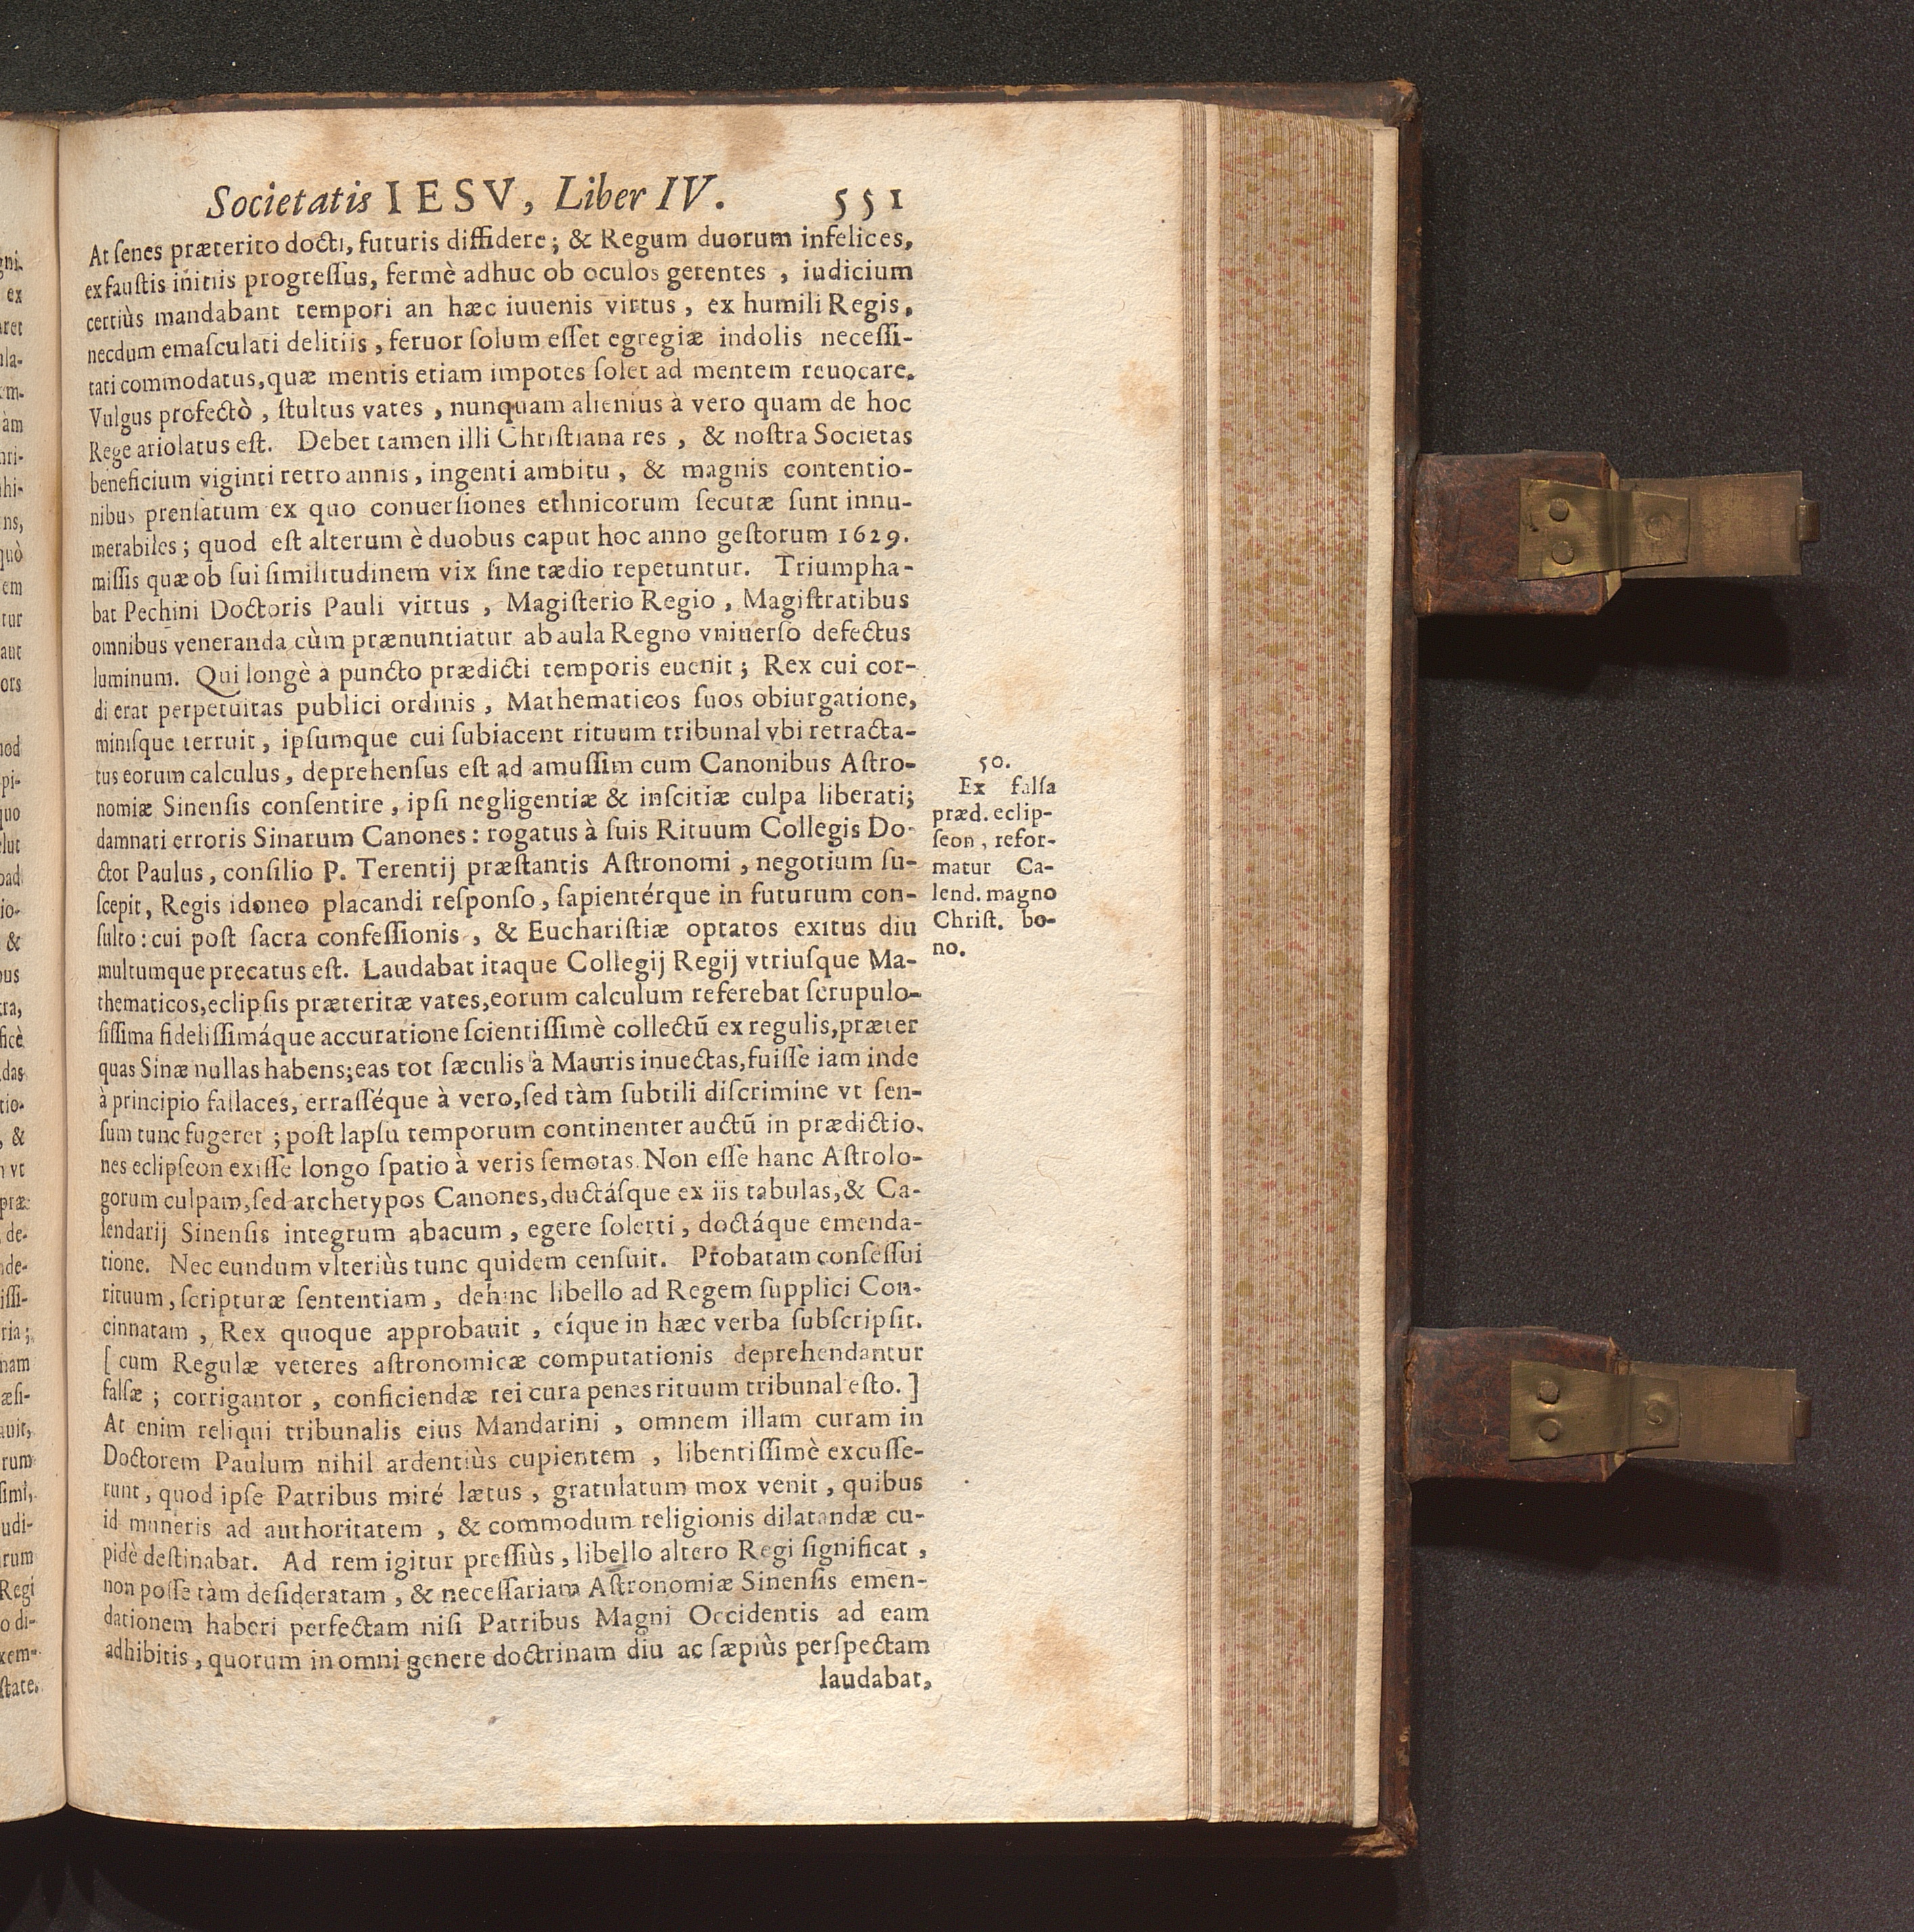 Societatis IESV, Liber IV. 551
At ſenes præterito docti, futuris diffidere; & Regum duorum infelices,
ex fauſtis initiis progreſſus, fermè adhuc ob oculos gerentes, iudicium
certiùs mandabant tempori an hæc iuuenis virtus, ex humili Regis,
necdum emaſculati delitiis, feruor ſolum eſſet egregiæ indolis neceſſi-
tati commodatus, quæ mentis etiam impotes ſolet ad mentem reuocare.
Vulgus profectò, ſtultus vates, nunquam alienius à vero quam de hoc
Rege ariolatus eſt. Debet tamen illi Chriſtiana res, & noſtra Societas
beneficium viginti retro annis, ingenti ambitu, & magnis contentio-
nibus prenſatum ex quo conuerſiones ethnicorum ſecutæ ſunt innu-
merabiles; quod eſt alterum è duobus caput hoc anno geſtorum 1629.
miſſis quæ ob ſui ſimilitudinem vix ſine tædio repetuntur. Triumpha-
bat Pechini Doctoris Pauli virtus, Magiſterio Regio, Magiſtratibus
omnibus veneranda cùm prænuntiatur ab aula Regno vniuerſo defectus
luminum. Qui longè à puncto prædicti temporis euenit; Rex cui cor-
di erat perpetuitas publici ordinis, Mathematicos ſuos obiurgatione,
miniſque terruit, ipſumque cui ſubiacent rituum tribunal vbi retracta-
tus eorum calculus, deprehenſus eſt ad amuſſim cum Canonibus Aſtro-
nomiæ Sinenſis conſentire, ipſi negligentiæ & inſcitiæ culpa liberati;
damnati erroris Sinarum Canones: rogatus à ſuis Rituum Collegis Do-
ctor Paulus, conſilio P. Terentij præſtantis Aſtronomi, negotium ſu-
ſcepit, Regis idoneo placandi reſponſo, ſapientérque in futurum con-
ſulto: cui poſt ſacra confeſſionis, & Euchariſtiæ optatos exitus diu
multumque precatus eſt. Laudabat itaque Collegij Regij vtriuſque Ma-
thematicos, eclipſis præteritæ vates, eorum calculum referebat ſcrupulo-
ſiſſima fideliſſimáque accuratione ſcientiſſimè collectũ ex regulis, præter
quas Sinæ nullas habens; eas tot ſæculis à Mauris inuectas, fuiſſe iam inde
à principio fallaces, erraſſéque à vero, ſed tàm ſubtili diſcrimine vt ſen-
ſum tunc fugeret; poſt lapſu temporum continenter auctũ in prædictio-
nes eclipſeon exiſſe longo ſpatio à veris ſemotas. Non eſſe hanc Aſtrolo-
gorum culpam, ſed archetypos Canones, ductáſque ex iis tabulas, & Ca-
lendarij Sinenſis integrum abacum, egere ſolerti, doctáque emenda-
tione. Nec eundum vlteriùs tunc quidem cenſuit. Probatam conſeſſui
rituum, ſcripturæ ſententiam, dehinc libello ad Regem ſupplici Con-
cinnatam, Rex quoque approbauit, eíque in hæc verba ſubſcripſit.
[cum Regulæ veteres aſtronomicæ computationis deprehendantur
falſæ; corrigantor, conficiendæ rei cura penes rituum tribunal eſto.]
At enim reliqui tribunalis eius Mandarini, omnem illam curam in
Doctorem Paulum nihil ardentiùs cupientem, libentiſſimè excuſſe-
runt, quod ipſe Patribus miré lætus, gratulatum mox venit, quibus
id muneris ad authoritatem, & commodum religionis dilatandæ cu-
pidè deſtinabat. Ad rem igitur preſſiùs, libello altero Regi ſignificat,
non poſſe tàm deſideratam, & neceſſariam Aſtronomiæ Sinenſis emen-
dationem haberi perfectam niſi Patribus Magni Occidentis ad eam
adhibitis, quorum in omni genere doctrinam diu ac ſæpiùs perſpectam
laudabat,
50.
Ex falſa
præd. eclip-
ſeon, refor-
matur Ca-
lend. magno
Chriſt. bo-
no.